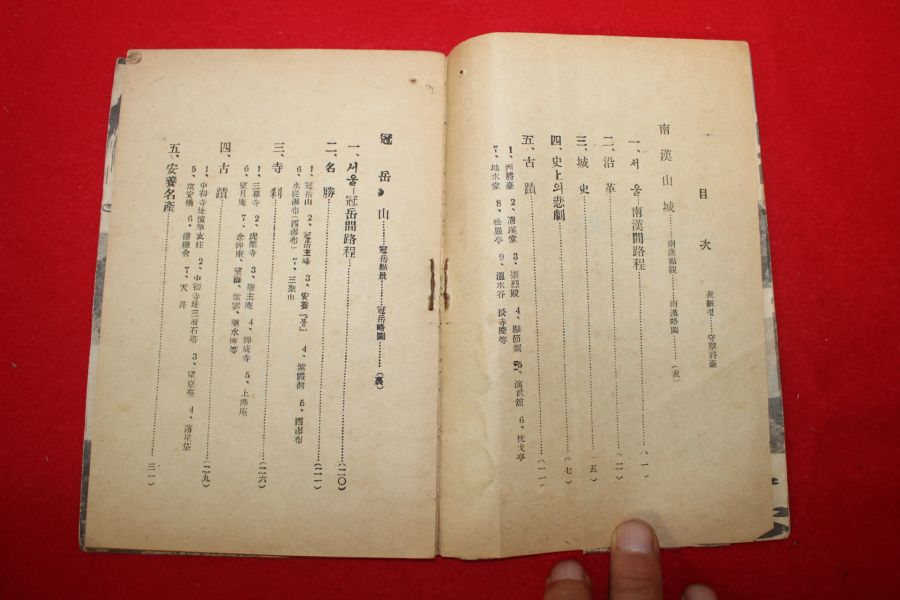 目次
南漢山城………南漢點觀………南漢略圖………(表)
一、서울=南漢間路程………(一)
二、沿革………(二)
三、城史………(五)
四、史上의悲劇………(七)
五、古蹟………(一一)
1、西將臺 2、淸溪堂 3、崇烈殿 4、顯節祠 5、演武舘 6、枕戈亭
7、地水堂 8、松巖亭 9、溫水谷 長寺慶等
冠岳山………冠岳點景………冠岳略圖………(裏)
一、서울=冠岳間路程………(二〇)
二、名勝………(二一)
1、冠岳山 2、冠岳主峰 3、安養『풀』 4、紫霞洞 5、西瀑布
7、三聖山
三、寺刹………(二六)
1、三幕寺 2、虎壓寺 3、戀主庵 4、佛成寺 5、上佛庵
6、望月庵 7、念佛庵、望海、紫雲、藥水庵等
四、古蹟………(二九)
1、中初寺址幢竿支柱 2、中初寺址三層石塔 3、望京臺 4、落星垈
5、萬安橋 7、天井
五、安養名產………(三一)